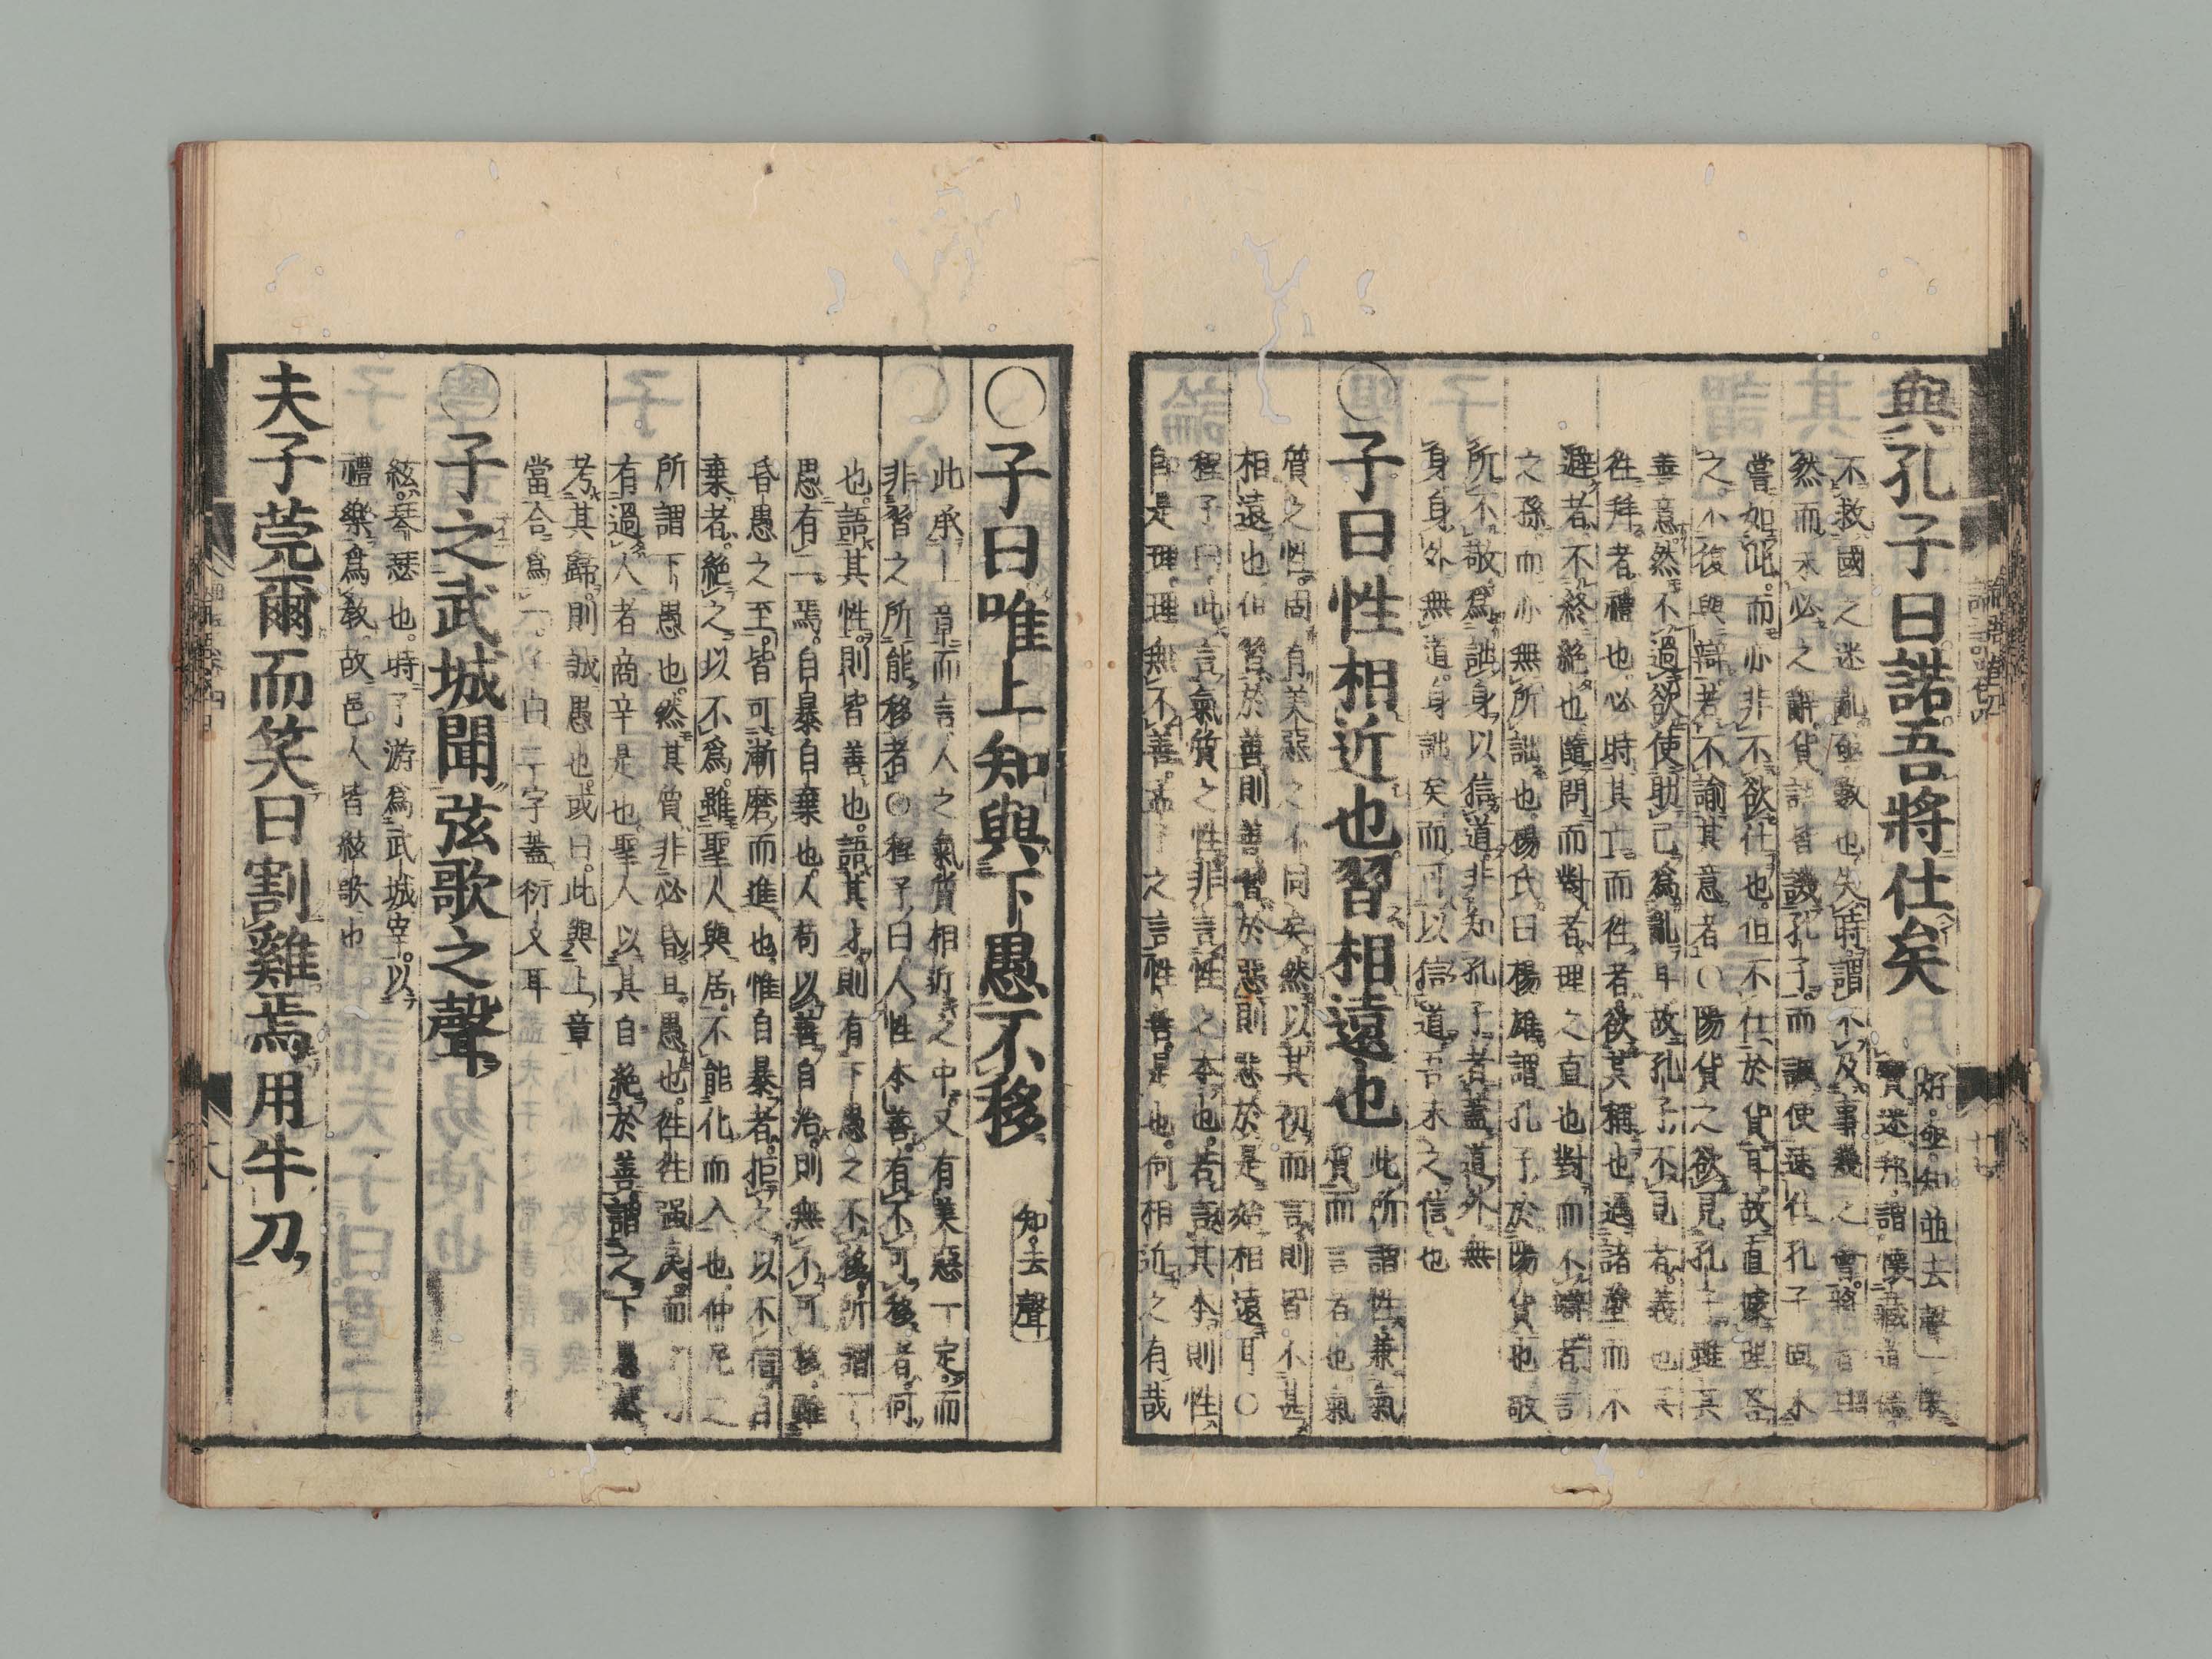 與孔子曰諾吾將仕矣
好亟知並去聲
寶迷邦謂懷藏道德
不救國之迷亂亟數也失時謂不及事幾之會將者且
然而未必之辭貨語皆譏孔子而諷使速仕孔子固未
嘗如此而亦非不欲仕也但不仕於貨耳故直據理答
之不復與辯若不諭其意者○陽貨之欲見孔子雖其
善意然不過欲使助己為亂耳故孔子不見者義也其
往拜者禮也必時其亡而往者欲其稱也遇諸塗而不
避者不終絕也隨問而對者理之直也對而不辯者言
之孫而亦無所詘也楊氏曰楊雄謂孔子於陽貨也敬
所不敬為詘身以信道非知孔子者蓋道外無
身身外無道身詘矣而可以信道吾未之信也
○子曰性相近也習相遠也
此所謂性兼氣
質而言者也氣
質之性固有美惡之不同矣然以其初而言則皆不甚
相遠也但習於善則善習於惡則惡於是始相遠耳○
程子曰此言氣質之性非言性之本也若言其本則性
即是理理無不善孟子之言性善是也何相近之有哉
○子曰唯上知與下愚不移
知去聲
此承上章而言人之氣質相近之中又有美惡一定而
非習之所能移者○程子曰人性本善有不可移者何
也語其性則皆善也語其才則有下愚之不移所謂下
愚有二焉自暴自棄也人苟以善自治則無不可移雖
昏愚之至皆可漸磨而進也惟自暴者拒之以不信自
棄者絕之以不為雖聖人與居不能化而入也仲尼之
所謂下愚也然其質非必昏且愚也往往强戾而
有過人者商辛是也聖人以其自絕於善謂之下愚然
考其歸則誠愚也或曰此與上章
當合為一子曰二字蓋衍文耳
○子之武城聞弦歌之聲
絃琴瑟也時子游為武城宰以
禮樂為教故邑人皆絃歌也
夫子莞爾而笑曰割雞焉用牛刀